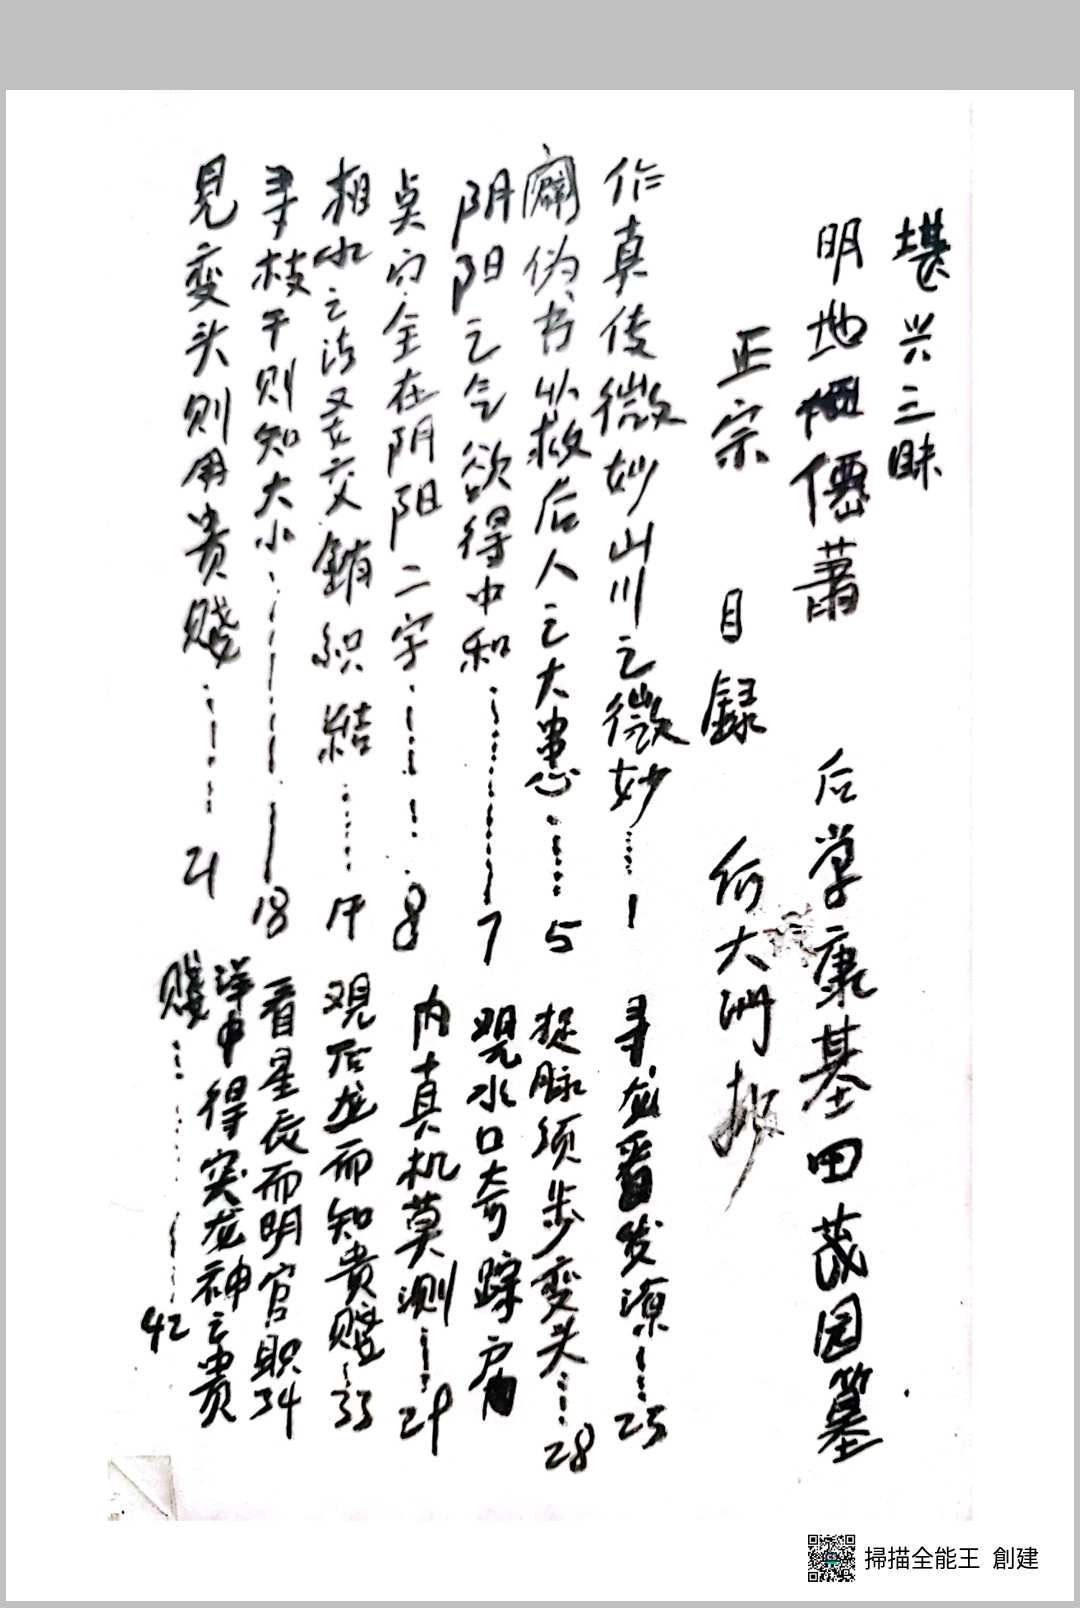 堪兴三昧
明地僊蕭 后学康基田茂园墓
正宗 目録 何大洲抄
作真传微妙山川之微妙……1
闢伪书以救后人之大患……5
阴阳之气欲得中和……7
点穴全在阴阳二字……8
相水之法要交銷织結……17
寻枝干则知大小……18
見变头则用贵贱……21
寻龙番发源……25
捉脉须步变头……28
覌水口奇踪
内真机莫测……29
观后龙而知贵贱……33
看星辰而明官职34
洋中得突龙神之贵
贱……42
掃描全能王 創建